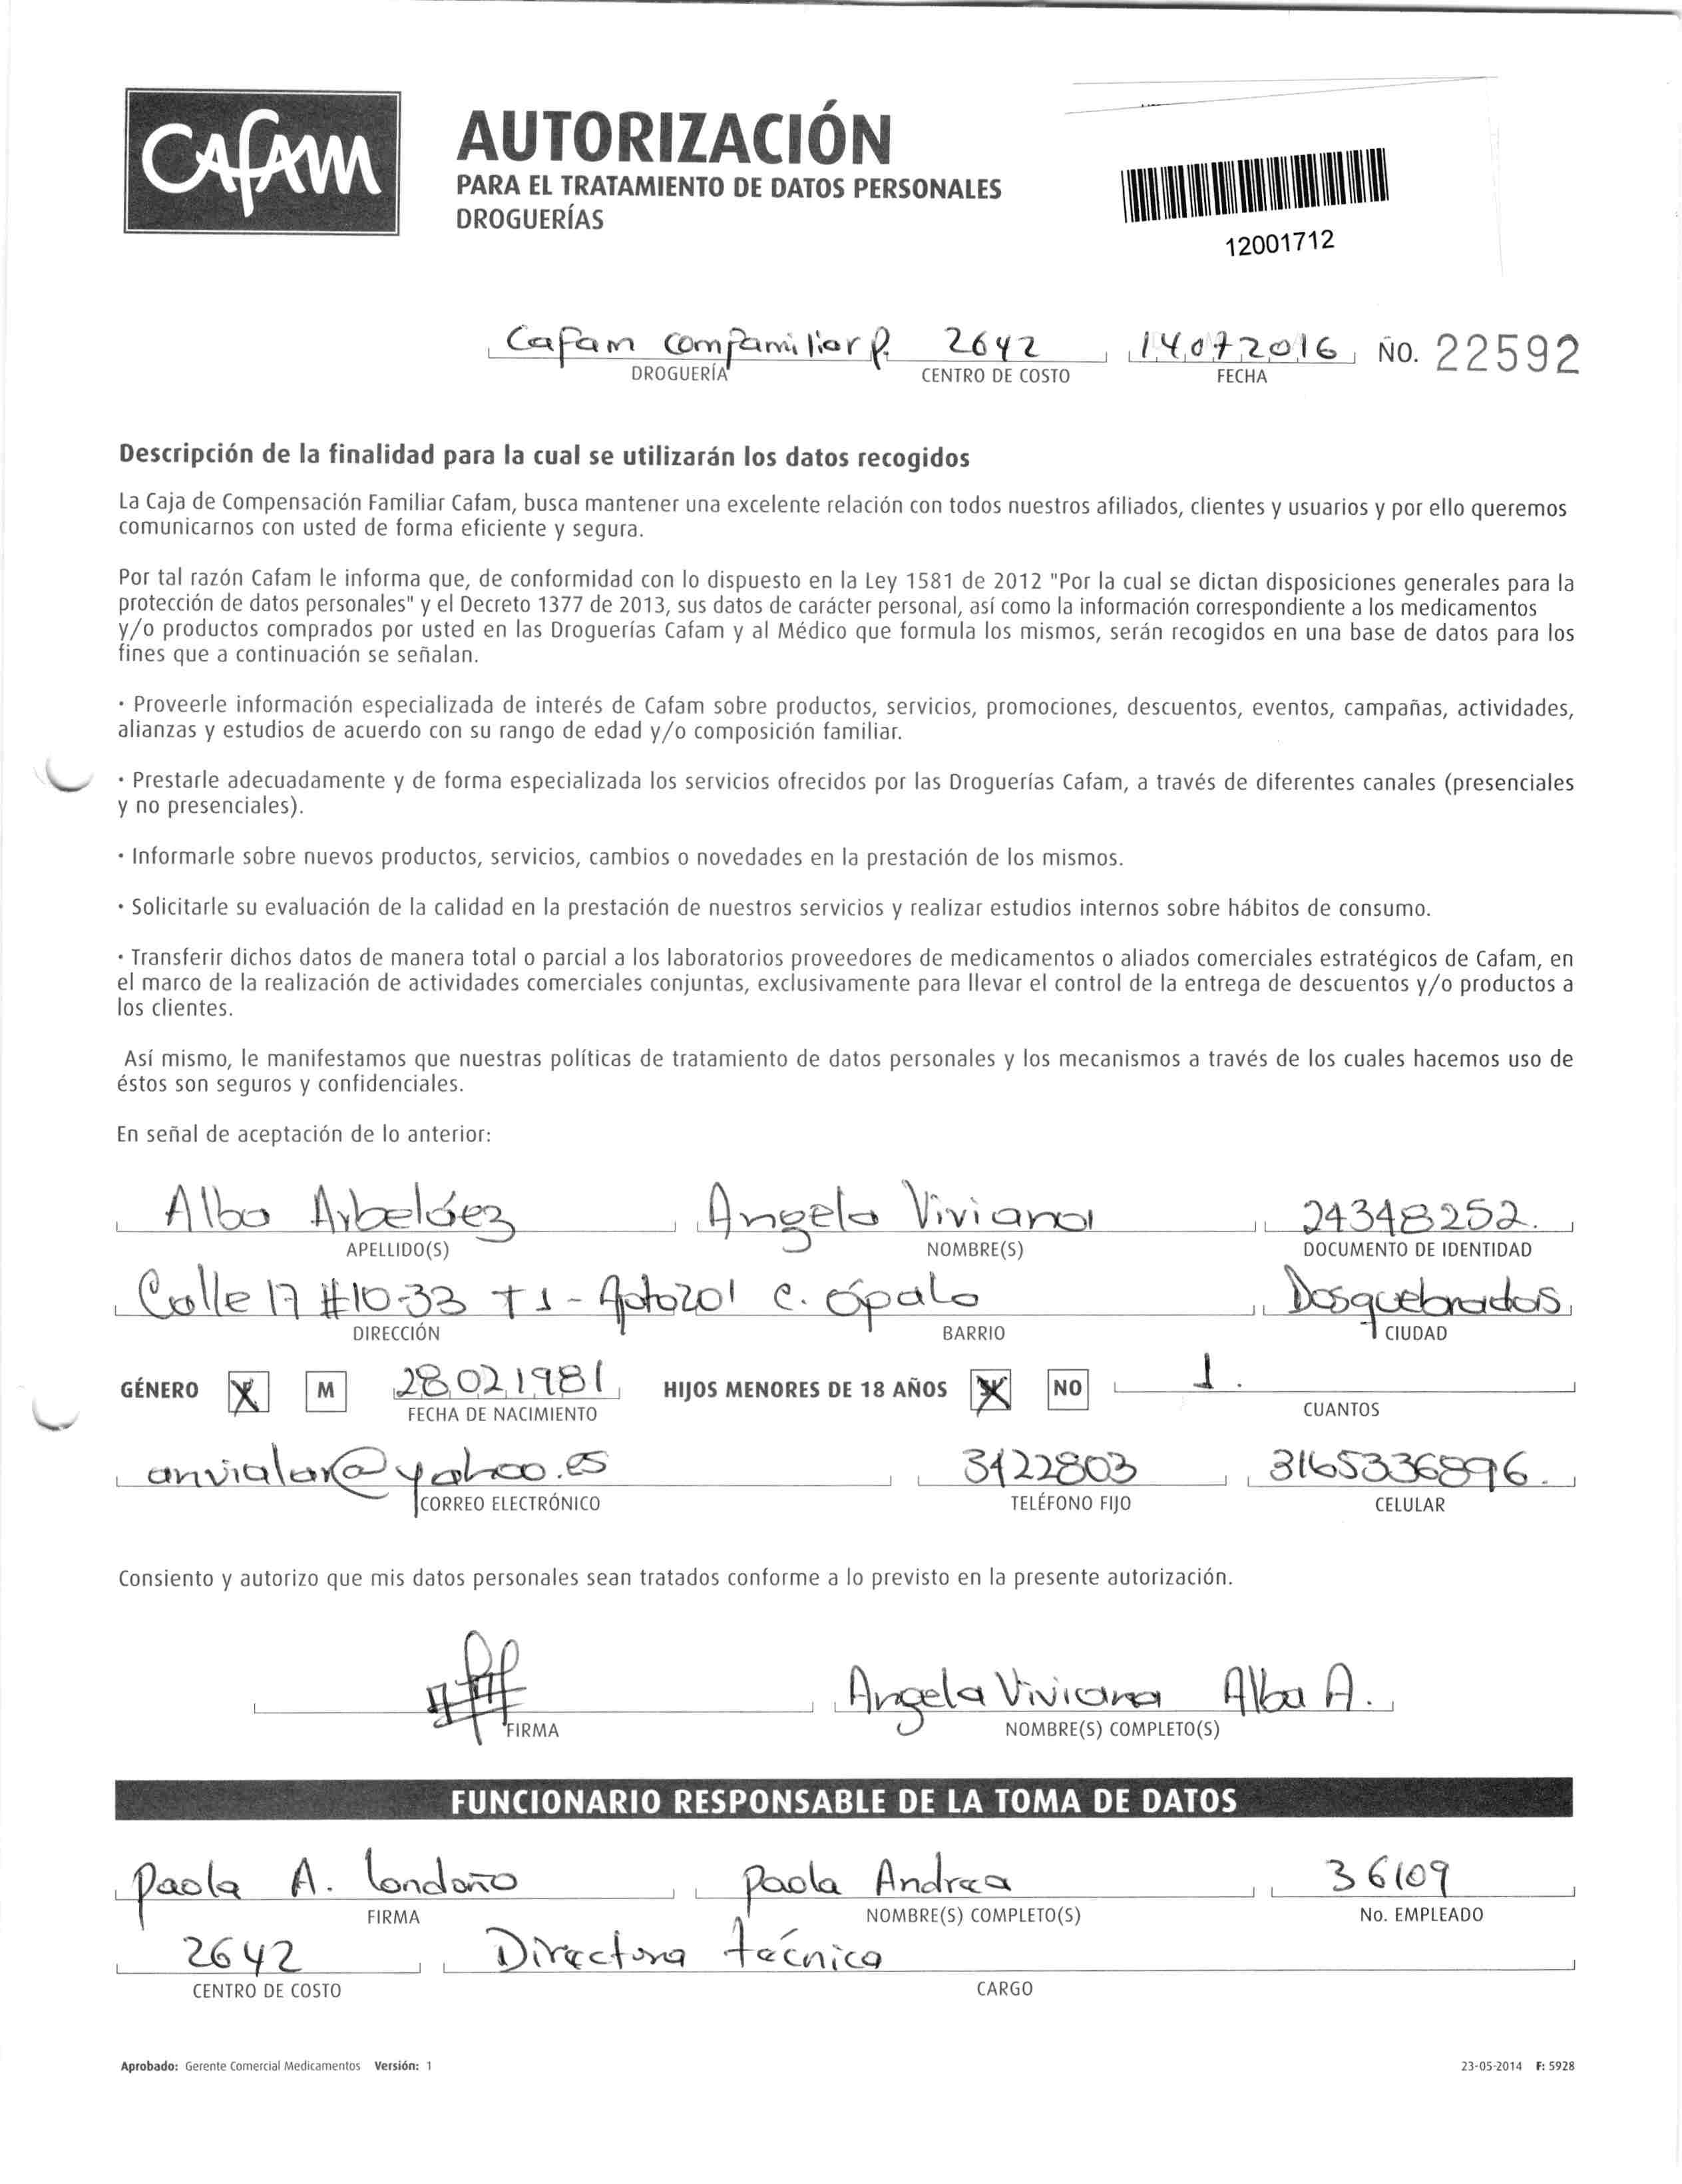 Cafam
AUTORIZACIÓN
PARA EL TRATAMIENTO DE DATOS PERSONALES
DROGUERÍAS
12001712
Cafam comfamiliar P. 2642 14072016 No. 22592
DROGUERÍA CENTRO DE COSTO FECHA
Descripción de la finalidad para la cual se utilizarán los datos recogidos
La Caja de Compensación Familiar Cafam, busca mantener una excelente relación con todos nuestros afiliados, clientes y usuarios y por ello queremos
comunicarnos con usted de forma eficiente y segura.
Por tal razón Cafam le informa que, de conformidad con lo dispuesto en la Ley 1581 de 2012 "Por la cual se dictan disposiciones generales para la
protección de datos personales" y el Decreto 1377 de 2013, sus datos de carácter personal, así como la información correspondiente a los medicamentos
y/o productos comprados por usted en las Droguerías Cafam y al Médico que formula los mismos, serán recogidos en una base de datos para los
fines que a continuación se señalan.
· Proveerle información especializada de interés de Cafam sobre productos, servicios, promociones, descuentos, eventos, campañas, actividades,
alianzas y estudios de acuerdo con su rango de edad y/o composición familiar.
· Prestarle adecuadamente y de forma especializada los servicios ofrecidos por las Droguerías Cafam, a través de diferentes canales (presenciales
y no presenciales).
· Informarle sobre nuevos productos, servicios, cambios o novedades en la prestación de los mismos.
· Solicitarle su evaluación de la calidad en la prestación de nuestros servicios y realizar estudios internos sobre hábitos de consumo.
· Transferir dichos datos de manera total o parcial a los laboratorios proveedores de medicamentos o aliados comerciales estratégicos de Cafam, en
el marco de la realización de actividades comerciales conjuntas, exclusivamente para llevar el control de la entrega de descuentos y/o productos a
los clientes.
Así mismo, le manifestamos que nuestras políticas de tratamiento de datos personales y los mecanismos a través de los cuales hacemos uso de
éstos son seguros y confidenciales.
En señal de aceptación de lo anterior:
Alba Arbeláez Angela Viviana 24348252.
APELLIDO(S) NOMBRE(S) DOCUMENTO DE IDENTIDAD
Calle 17 #10-33 T1 - Apto201 C. ópalo Dosquebradas
DIRECCIÓN BARRIO CIUDAD
GÉNERO X M 28021981 HIJOS MENORES DE 18 AÑOS X NO 1.
FECHA DE NACIMIENTO CUANTOS
anvialar@yahoo.es 3422803 3165336896.
CORREO ELECTRÓNICO TELÉFONO FIJO CELULAR
Consiento y autorizo que mis datos personales sean tratados conforme a lo previsto en la presente autorización.
Angela Viviana Alba A.
FIRMA NOMBRE(S) COMPLETO(S)
FUNCIONARIO RESPONSABLE DE LA TOMA DE DATOS
Paola A. Londoño Paola Andrea 36109
FIRMA NOMBRE(S) COMPLETO(S) No. EMPLEADO
2642 Directora técnica
CENTRO DE COSTO CARGO
Aprobado: Gerente Comercial Medicamentos Versión: 1 23-05-2014 F: 5928